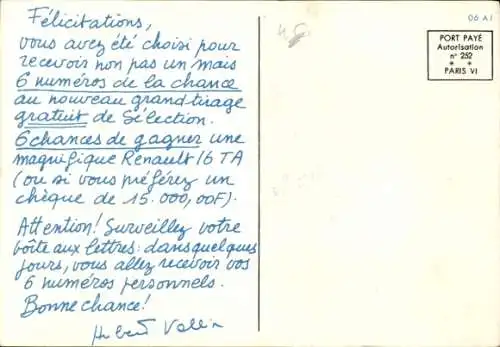 Félicitations,
vous avez été choisi pour
recevoir non pas un mais
6 numéros de la chance
au nouveau grand tirage
gratuit de Sélection.
6 chances de gagner une
magnifique Renault 16 TA
(ou si vous préférez un
chèque de 15.000,00F).
Attention! Surveillez votre
boîte aux lettres: dans quelques
jours, vous allez recevoir vos
6 numéros personnels.
Bonne chance!
Hubert
06 A1
PORT PAYÉ
Autorisation
n° 252
* *
PARIS VI